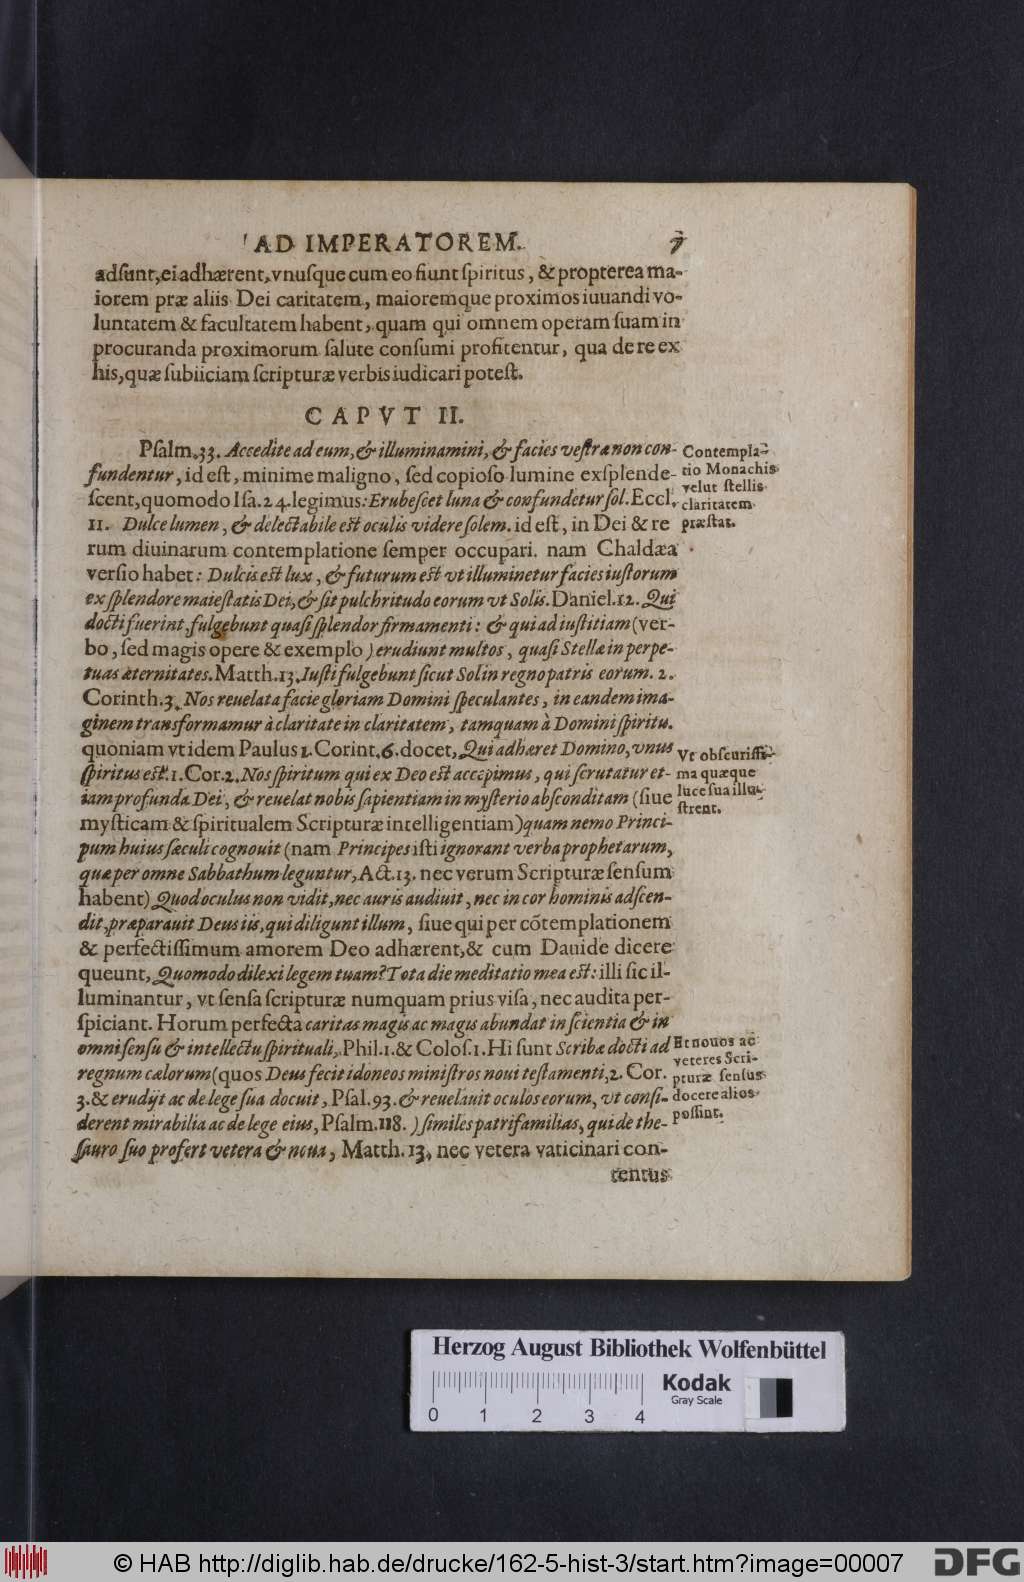 AD IMPERATOREM. 7
adsunt, ei adhærent, vnusque cum eo fiunt spiritus, & propterea ma-
iorem præ aliis Dei caritatem, maioremque proximos iuuandi vo-
luntatem & facultatem habent, quam qui omnem operam suam in
procuranda proximorum salute consumi profitentur, qua de re ex
his, quæ subiiciam scripturæ verbis iudicari potest.
CAPVT II.
Psalm. 33. Accedite ad eum, & illuminamini, & facies vestræ non con-
fundentur, id est, minime maligno, sed copioso lumine exsplende-
scent, quomodo Isa. 24. legimus: Erubescet luna & confundetur sol. Eccl.
11. Dulce lumen, & delectabile est oculis videre solem. id est, in Dei & re
rum diuinarum contemplatione semper occupari. nam Chaldæa
versio habet: Dulcis est lux, & futurum est vt illuminetur facies iustorum
ex splendore maiestatis Dei, & sit pulchritudo eorum vt Solis. Daniel. 12. Qui
docti fuerint, fulgebunt quasi splendor firmamenti: & qui ad iustitiam (ver-
bo, sed magis opere & exemplo) erudiunt multos, quasi Stellæ in perpe-
tuas æternitates. Matth. 13. Iusti fulgebunt sicut Sol in regno patris eorum. 2.
Corinth. 3. Nos reuelata facie gloriam Domini speculantes, in eandem ima-
ginem transformamur à claritate in claritatem, tamquam à Domini spiritu.
quoniam vt idem Paulus 1. Corint. 6. docet, Qui adhæret Domino, vnus
spiritus est. 1. Cor. 2. Nos spiritum qui ex Deo est accepimus, qui scrutatur et-
iam profunda Dei, & reuelat nobis sapientiam in mysterio absconditam (siue
mysticam & spiritualem Scripturæ intelligentiam) quam nemo Princi-
pum huius sæculi cognouit (nam Principes isti ignorant verba prophetarum,
quæ per omne Sabbathum leguntur, Act. 13. nec verum Scripturæ sensum
habent) Quod oculus non vidit, nec auris audiuit, nec in cor hominis adscen-
dit, præparauit Deus iis, qui diligunt illum, siue qui per cõtemplationem
& perfectissimum amorem Deo adhærent, & cum Dauide dicere
queunt, Quomodo dilexi legem tuam? Tota die meditatio mea est: illi sic il-
luminantur, vt sensa scripturæ numquam prius visa, nec audita per-
spiciant. Horum perfecta caritas magis ac magis abundat in scientia & in
omni sensu & intellectu spirituali, Phil. 1. & Colos. 1. Hi sunt Scribæ docti ad
regnum cælorum (quos Deus fecit idoneos ministros noui testamenti, 2. Cor.
3. & erudijt ac de lege sua docuit, Psal. 93. & reuelauit oculos eorum, vt consi-
derent mirabilia ac de lege eius, Psalm. 118.) similes patrifamilias, qui de the-
sauro suo profert vetera & noua, Matth. 13. nec vetera vaticinari con-
tentus
Contempla-
tio Monachis
velut stellis
claritatem
præstat.
Vt obscurissi-
ma quæque
luce sua illu-
strent.
Et nouos ac
veteres Scri-
pturæ sensus
docere alios
possint.
Herzog August Bibliothek Wolfenbüttel
Kodak
Gray Scale
0 1 2 3 4
© HAB http://diglib.hab.de/drucke/162-5-hist-3/start.htm?image=00007
DFG